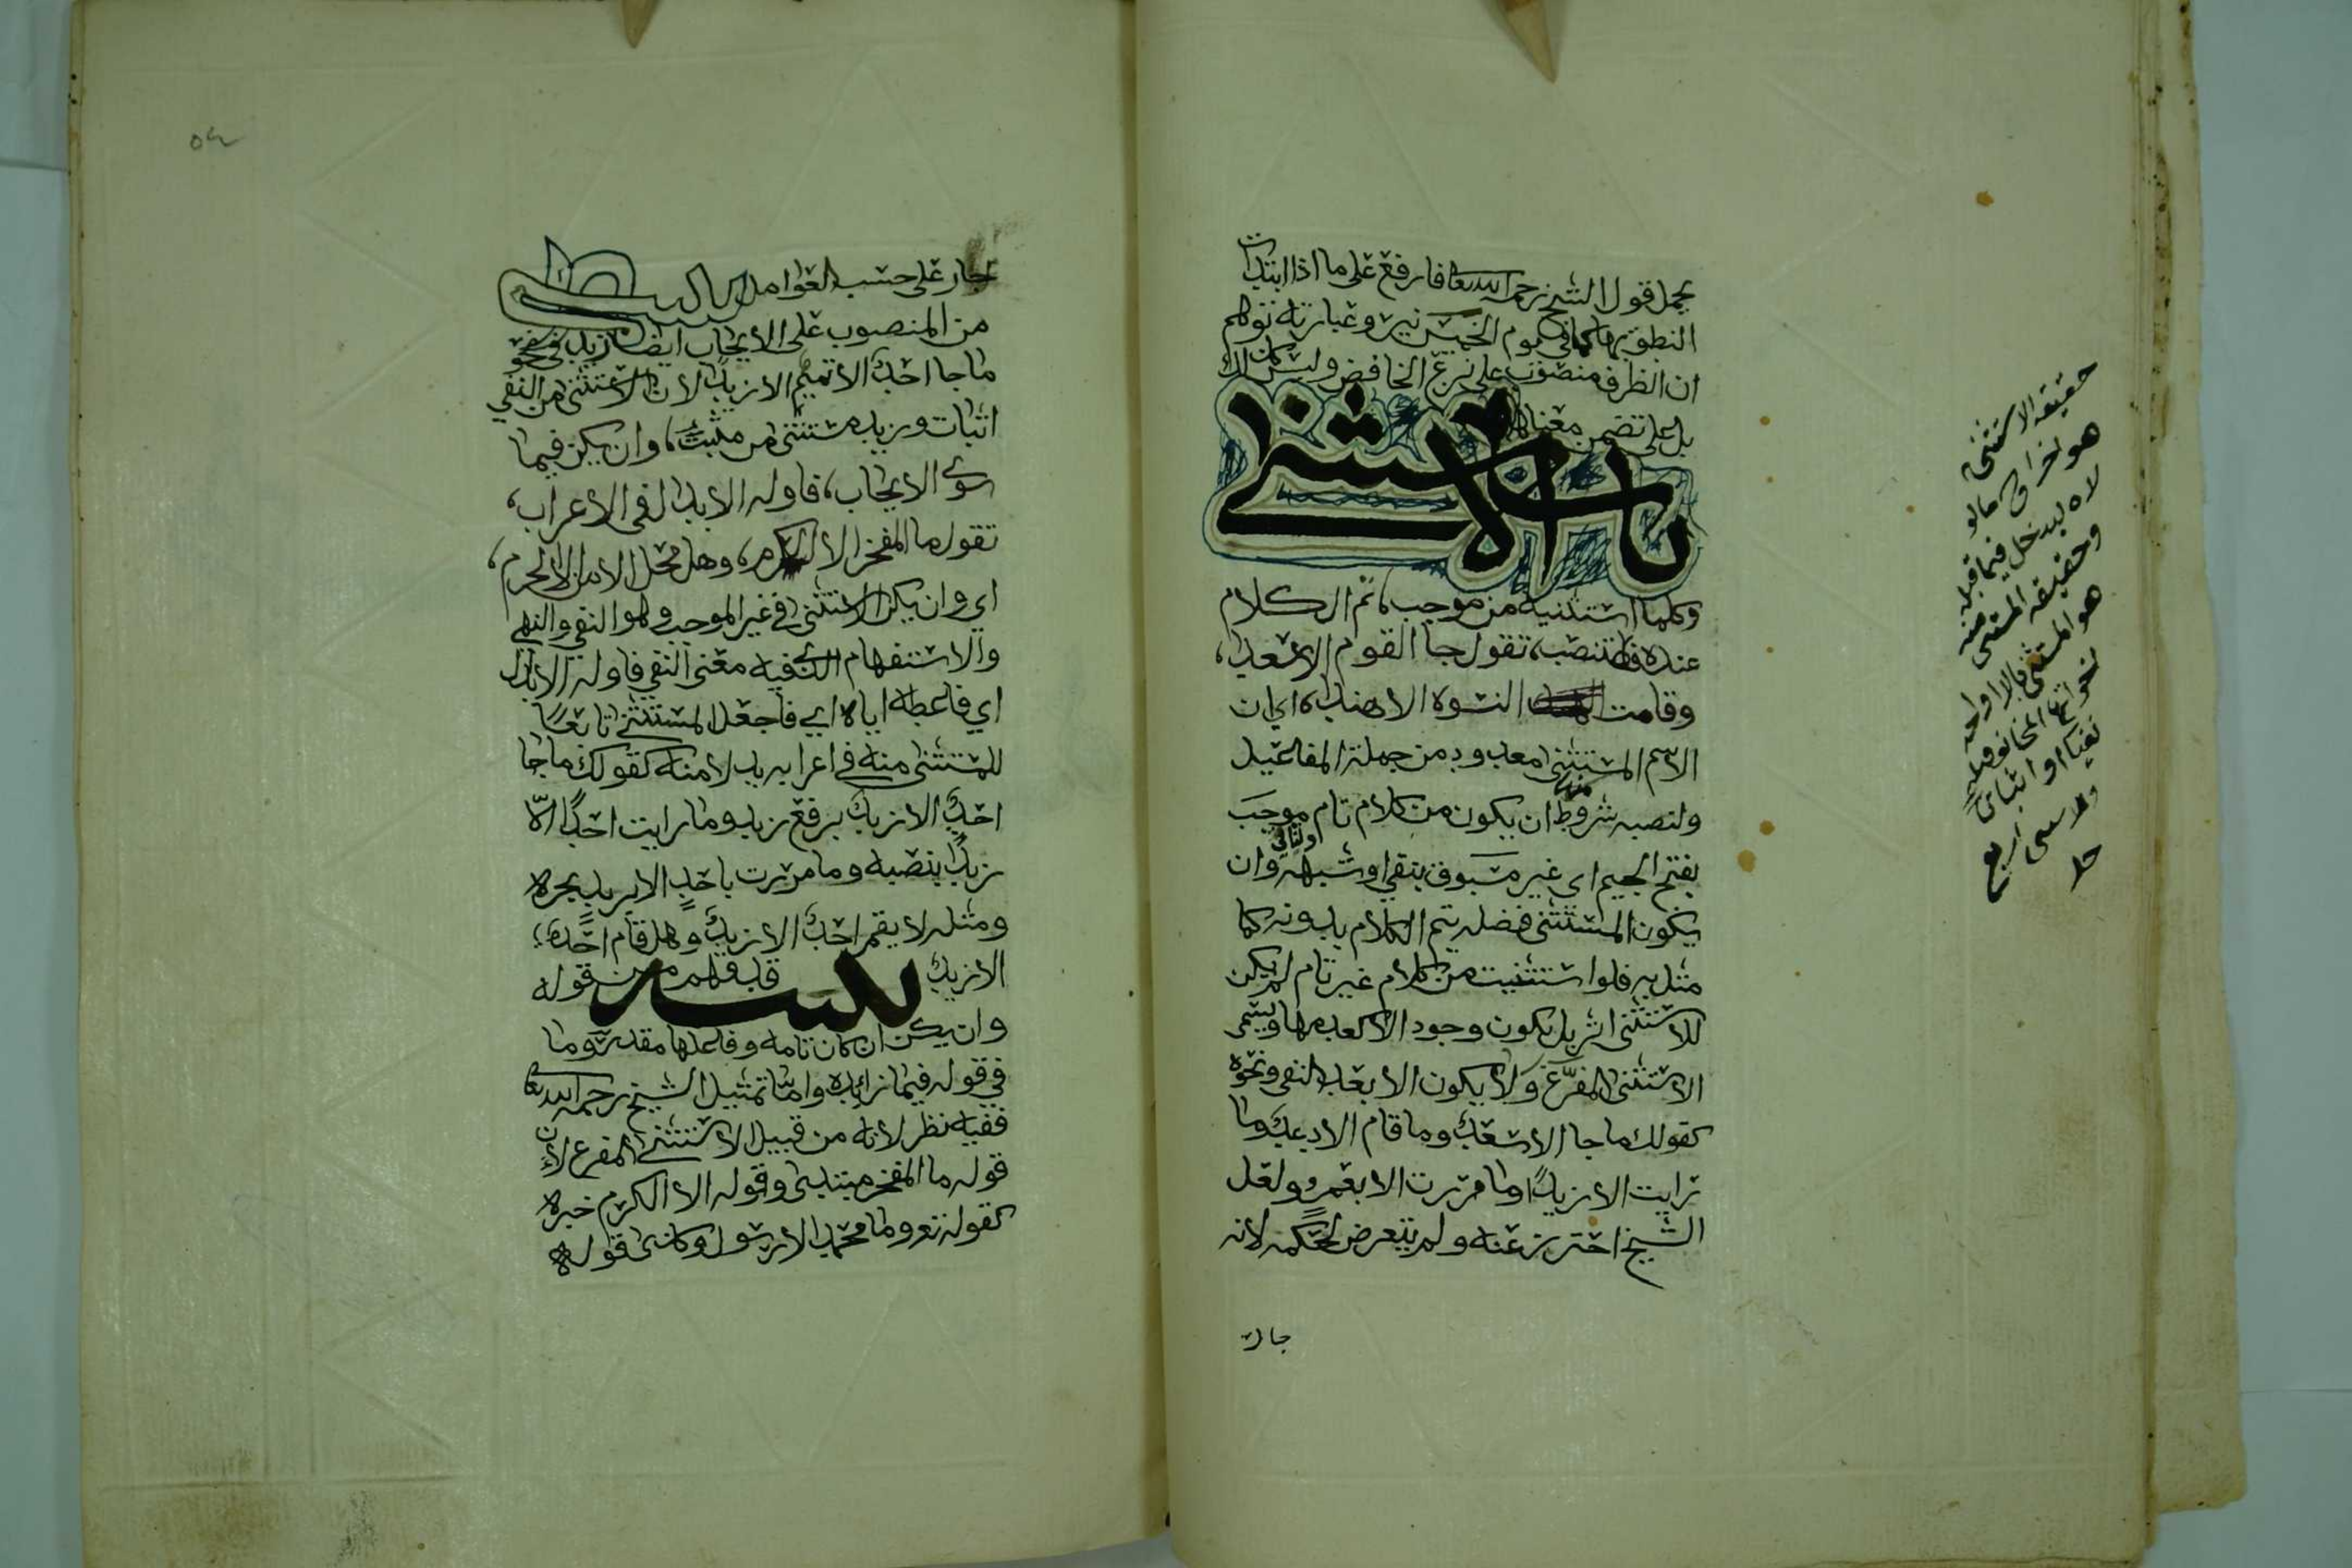 يحمل قول الشيخ رحمه الله تعا فارفع على ما اذا ابتدات
النطق بها كما في يوم الخميس نير وعبارته توهم
ان الظرف منصوب على نزع الخافض وليس كذلك
بل على تضمن معناها
باب الاستثنى
وكلما استثنيته من موجب، تم الكلام
عنده فلتنصب، تقول جا القوم الا سعدا،
وقامت النسوة الا هندا، اي ان
الاسم المستثنى معدود من جملة المفاعيل
ولنصبه شروط منها ان يكون من كلام تام موجب
بفتح الجيم اي غير مسبوق بنفي او شبهه وان
يكون المستثنى فضله يتم الكلام بدونه كما
مثل به فلو استثنيت من كلام غير تام لم يكن
للاستثنى اثر بل يكون وجود الا كعدمها ويسمى
الاستثنى المفرغ ولا يكون الا بعد النفي ونحوه
كقولك ما جا الا سعد وما قام الا دعد وما
رايت الا زيدا وما مررت الا بعمرو ولعل
الشيخ احترز عنه ولم يتعرض لحكمه لانه
جار
حقيقه الاستثنى
هو اخراج ما لو
لاه لدخل فيما قبله
وحقيقه المستثنى منه
هو المستثنى بالا او احد
اخواتها المخالف
نفيا او اثباتا
٥٤
جار على حسب العوامل
من المنصوب على الايجاب ايضا زيد في نحو
ما جا احد الا تميم الا زيدا لان الاستثنى من النفي
اثبات وزيد مستثنى من مثبت، وان يكن فيما
سوى الايجاب، فاوله الابدال في الاعراب،
تقول ما المفخر الا الكرم، وهل محل الامن الا الحرم،
اي وان يكن الاستثنى في غير الموجب وهو النفي والنهي
والاستفهام الذي فيه معنى النفي فاوله الابدال
اي فاعطه اياه اي فاجعل المستثنى تابعا
للمستثنى منه في اعرابه بدلا منه كقولك ما جا
احد الا زيد برفع زيد وما رايت احدا الا
زيدا بنصبه وما مررت باحد الا زيد بجره
ومثله لا يقم احد الا زيد وهل قام احد
الا زيد تنبيه قد فهم من قوله
وان يكن ان كان تامه وفاعلها مقدر وما
في قوله فيما زائده واما تمثيل الشيخ رحمه الله تعا
ففيه نظر لانه من قبيل الاستثنى المفرغ لان
قوله ما المفخر مبتدى وقوله الا الكرم خبره
كقوله تع وما محمد الا رسول وكذى قوله